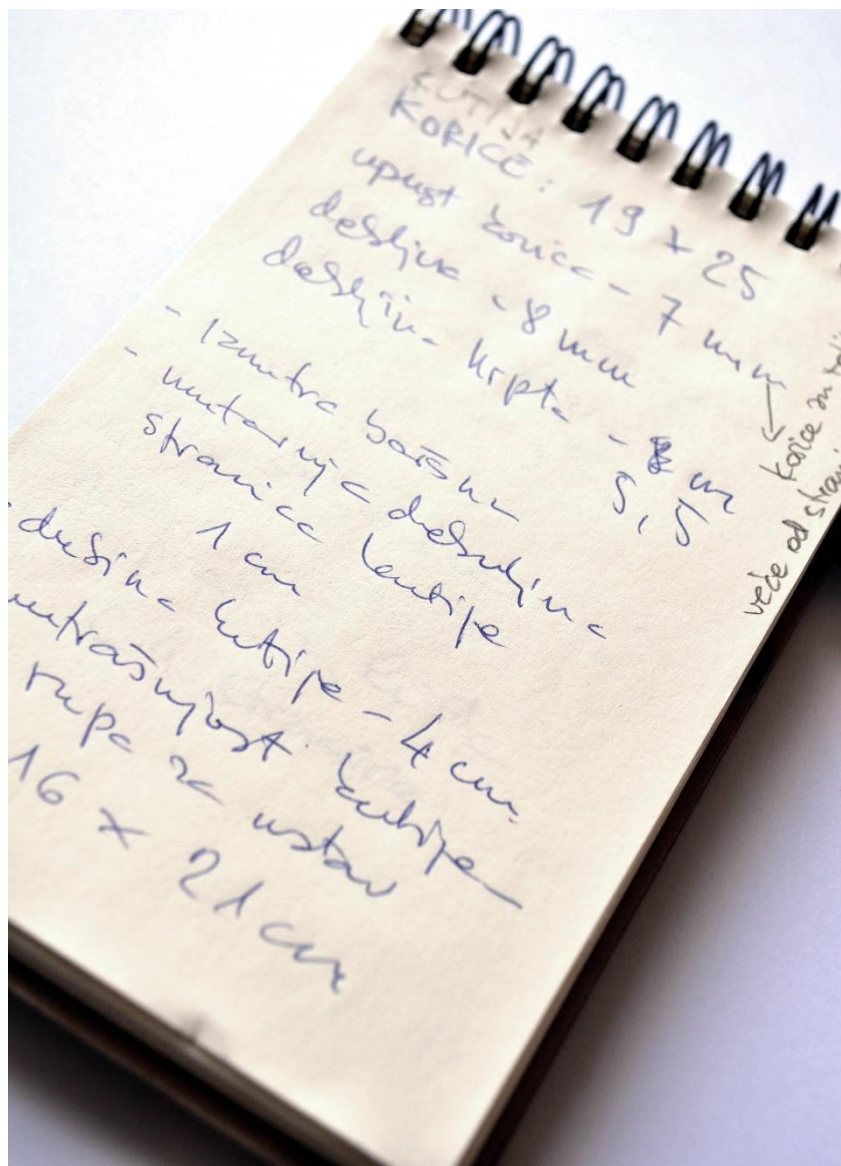 KUTIJA
KORICE: 19 x 25
upust korice - 7 mm
debljina - 8 mm
debljina hrpta - mm
5,5
- Iznutra
- unutarnja debljina
stranica kutije
1 cm
dužina kutije - 4 cm
unutrašnjost kutije
rupa za ustav
16 x 21 cm
korice su
veće od